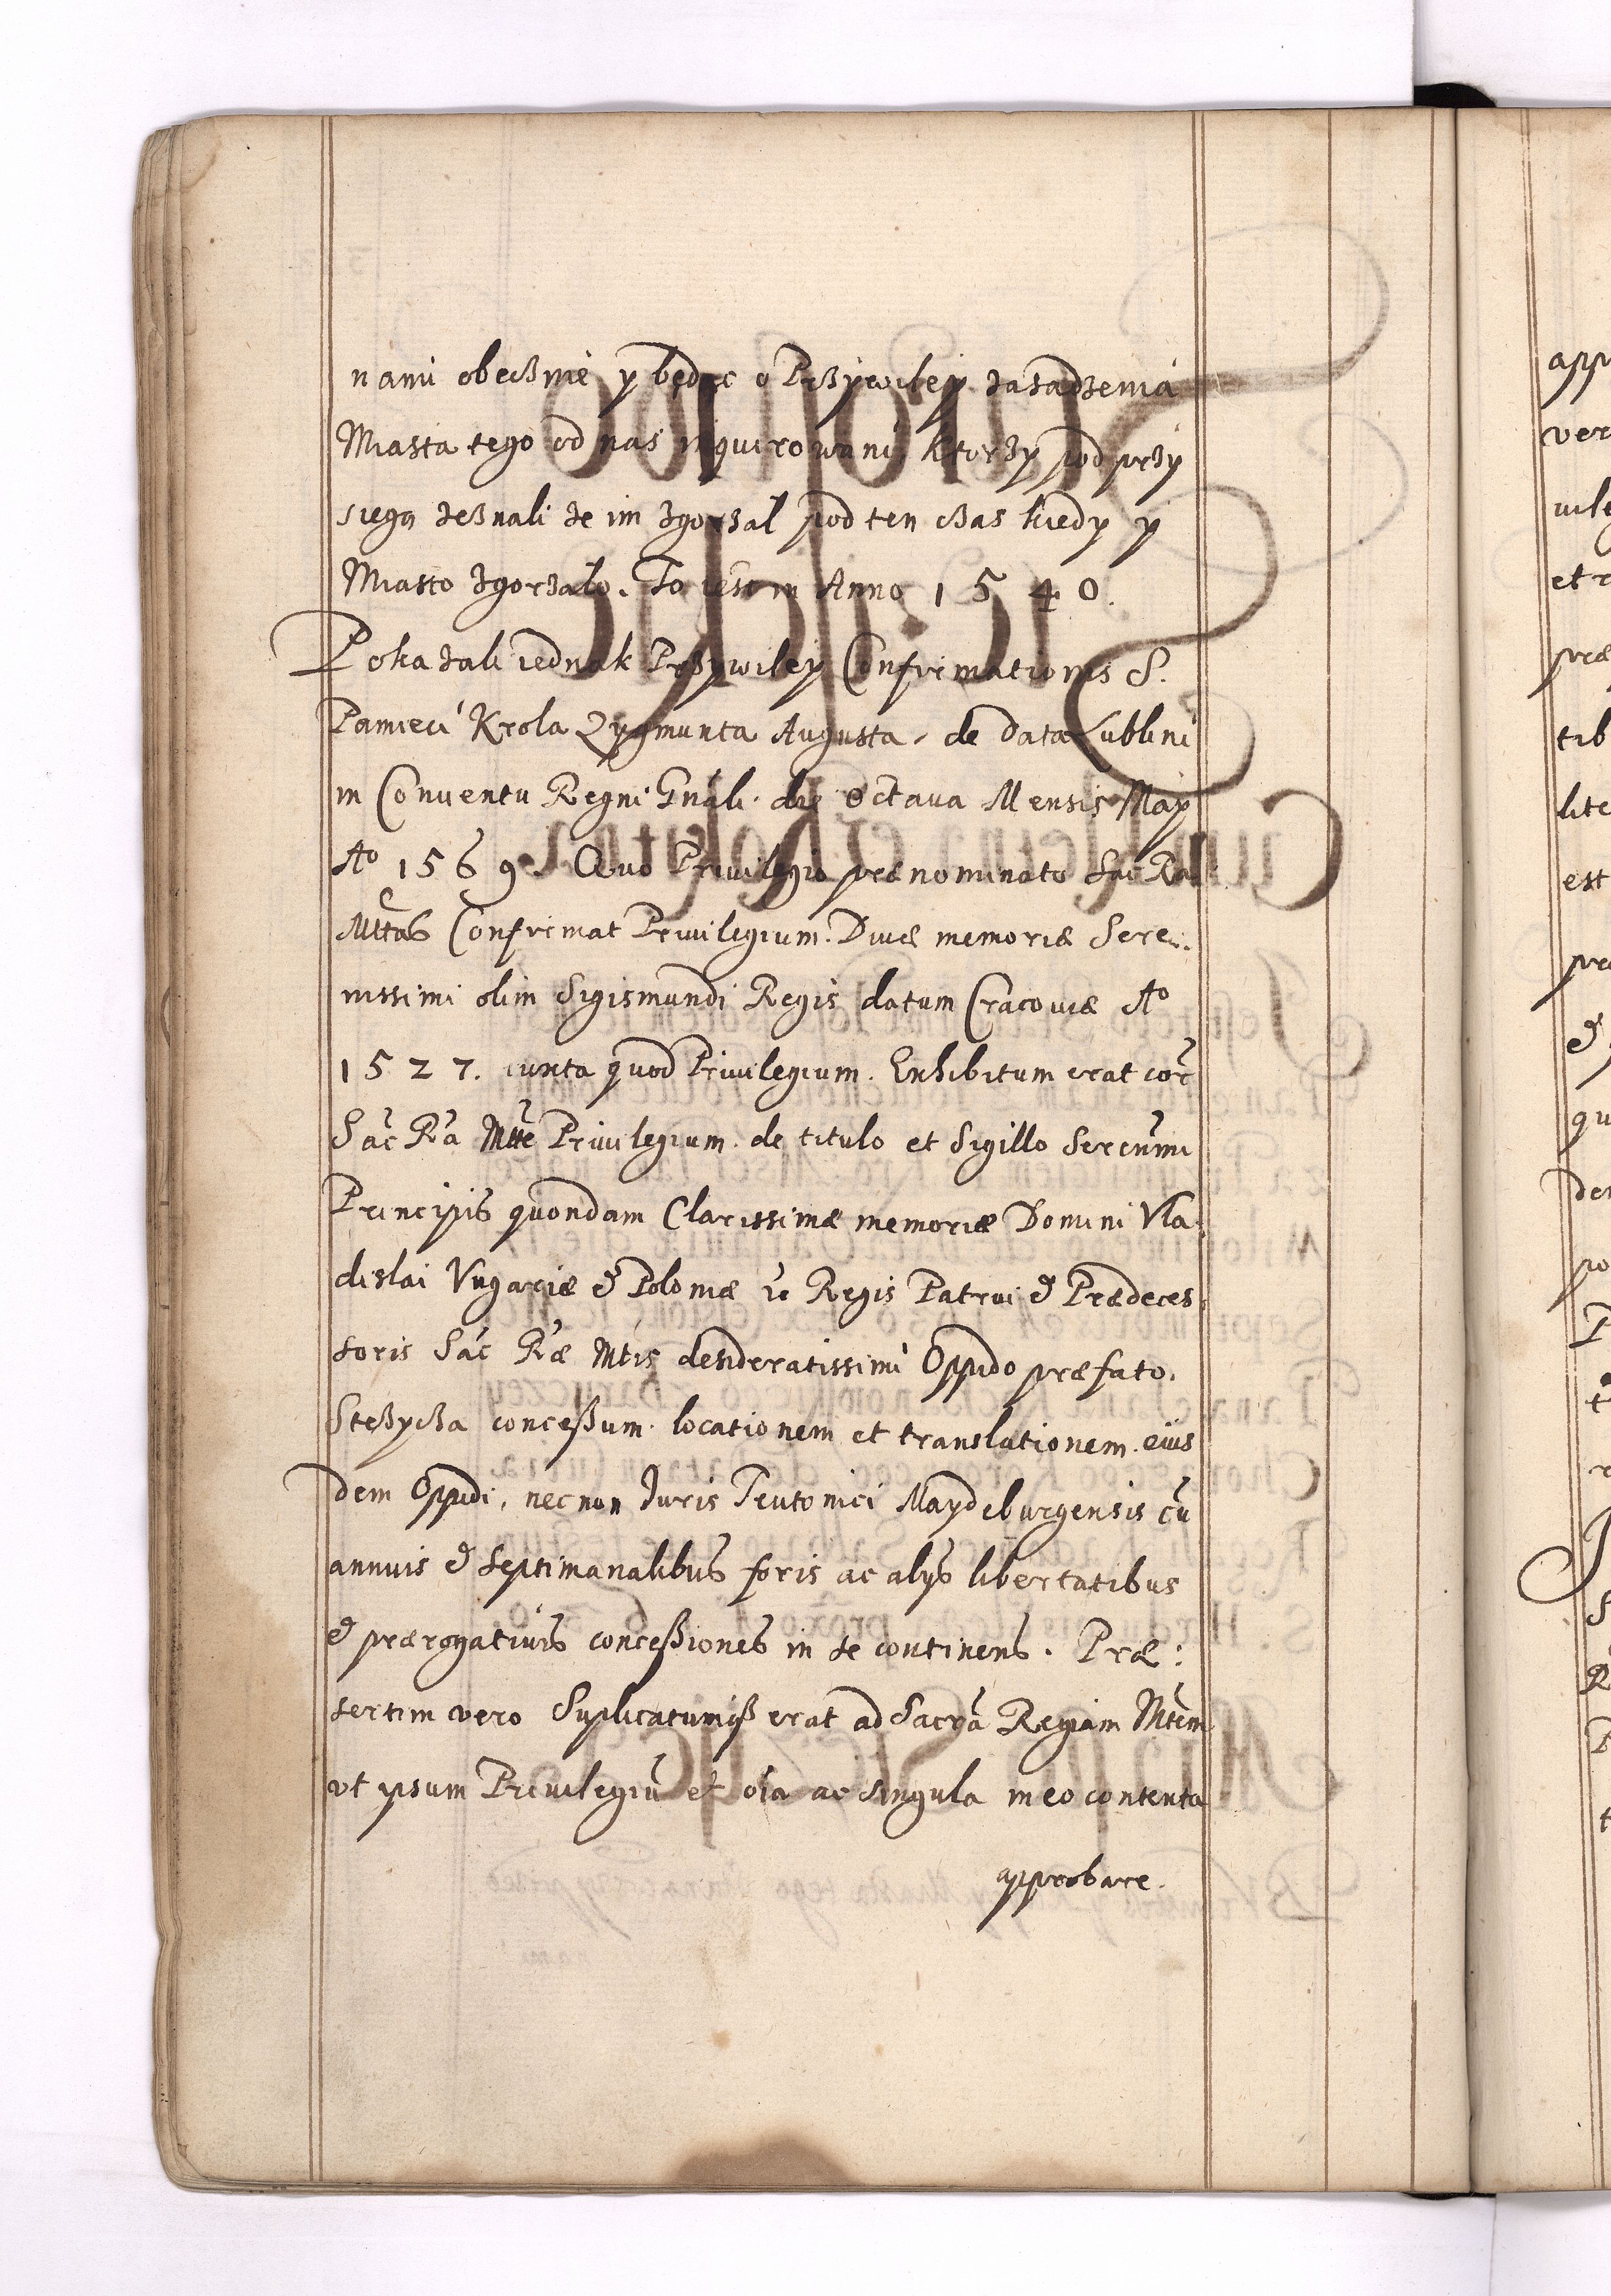 nami obecznie y będąc o Przywiley zasadzenia
Miasta tego od nas inquirowani, ktorzy pod przy
sięgą zeznali że im zgorzał pod ten czas kiedy y
Miasto zgorzało. To iest in Anno 1540.
Pokazali iednak Przywiley Confirmationis S.
Pamięci Krola Zygmunta Augusta, de data Lublini
in Conventu Regni Gnali. die Octava Mensis May
Ao 1569. Quo Privilegio prænominato Sac Ra
Mttas Confirmat Privilegium. Divæ memoriæ Sere:
nissimi olim Sigismundi Regis datum Cracoviæ Ao
1527. iuxta quod Privilegium. Exhibitum erat cor
Sac Ra Mtte Privilegium de titulo et Sigillo Serenmi
Principis quondam Clarissimæ memoriæ Domini Vla
dislai Vngariæ & Poloniæ &c Regis Patrui & Prædeces
soris Sac Ræ Mtis desideratissimi Oppido præfato.
Stezycza concessum. locationem et translationem. eius
dem Oppidi, nec non Juris Teutonici Maydeburgensis cu
annuis & septimanalibus foris ac alys libertatibus
& prærogativis concessiones in se continens. Præ:
sertim vero Suplicatumq erat ad Sacra Regiam Mtem
vt ipsum Privilegiu et oia ac singula in eo contenta
approbare.
app
ver
vile
et r
præ
tib
lite
est
pr
&
qu
den
po